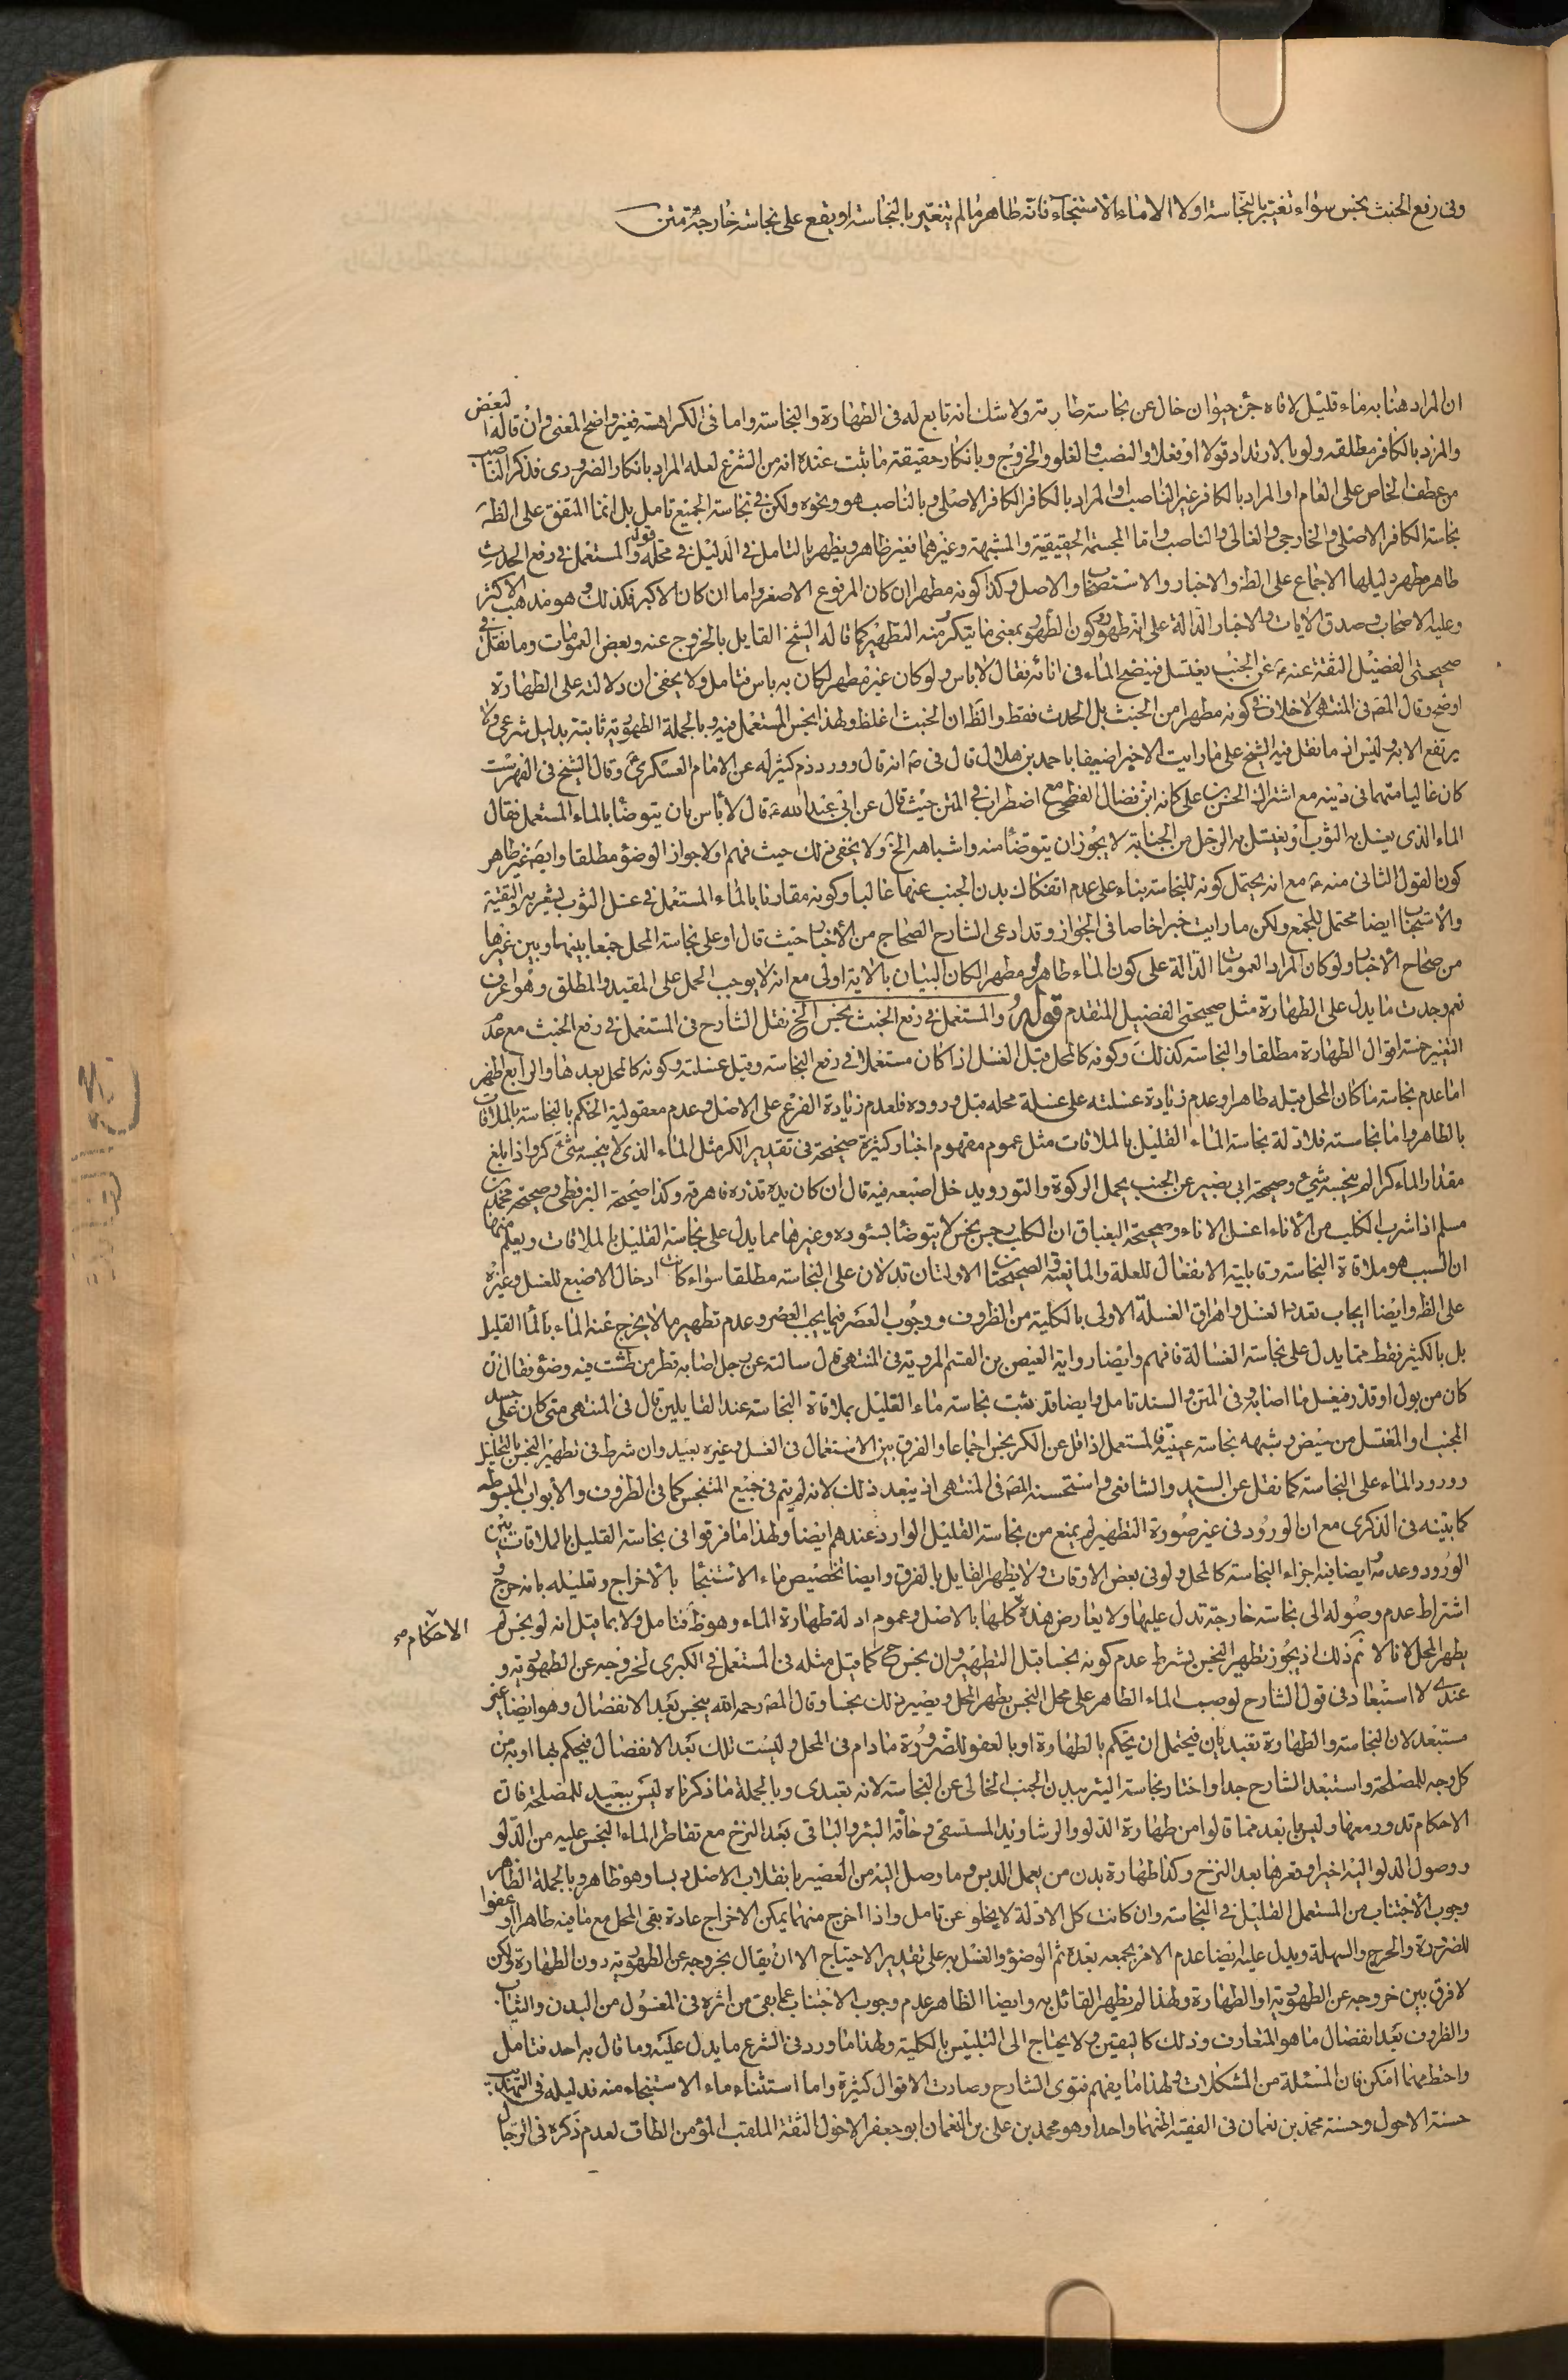 وفى رفع الخبث نجس سواء تغير بالنجاسة اولا الا ماء الاستنجاء فانه طاهر ما لم يتغير بالنجاسة او يقع على نجاسة خارجة متن
ان المراد هنا به ماء قليل لاقاه جزء حيوان خال عن نجاسة طارية ولا شك انه تابع له فى الطهارة والنجاسة واما فى الكراهة فغير واضح المعنى وان قاله البعض
والمراد بالكافر مطلقه ولو بالارتداد قولا او فعلا والنصب والغلو والخروج وبانكار حقيقة ما ثبت عنده انه من الشرع لعله المراد بانكار الضرورى فذكر الناصب
من عطف الخاص على العام او المراد بالكافر غير الناصب او المراد بالكافر الكافر الاصلى وبالناصب هو ونحوه ولكن فى نجاسة الجميع تامل بل انما المتفق على الظ
نجاسة الكافر الاصلى والخارجى والغالى والناصب واما المجسمة الحقيقية والمشبهة وغيرهما فغير ظاهر ويظهر بالتامل فى الدليل فى محله قوله والمستعمل فى رفع الحدث
طاهر مطهر دليلها الاجماع على الظ والاخبار والاستصحاب والاصل وكذا كونه مطهرا ان كان المرفوع الاصغر واما ان كان الاكبر فكذلك وهو مذهب الاكثر
وعليه الاصحاب وصدق الايات والاخبار الدالة على انه طهور وكون الطهور بمعنى ما يتكرر منه التطهير كما قاله الشيخ القايل بالخروج عنه وبعض العمومات وما نقل فى
صحيحتى الفضيل الثقة عنه ع عن الجنب يغتسل فينضح الماء فى انائه فقال لا باس ولو كان غير مطهر لكان به باس فتامل ولا يخفى ان دلالته على الطهارة
اوضح وقال المصَ فى المنتهى لا خلاف فى كونه مطهرا من الخبث بل الحدث فقط والظ ان الخبث اغلظ ولهذا ينجس المستعمل فيه وبالجملة الطهورية ثابتة بدليل شرعى ولا
يرتفع الا به وليس له ما نقل فيه الشيخ على ما رايت الا خبرا ضعيفا باحمد بن هلال قال فى صه انه قال وورد ذم كثير له عن الامام العسكرى وقال الشيخ فى الفهرست
كان غاليا متهما فى دينه مع اشتراك الحسن بن على كانه ابن فضال الفطحى مع اضطراب فى المتن حيث قال عن ابى عبد الله ع قال لا بأس بان يتوضأ بالماء المستعمل فقال
الماء الذى يغسل به الثوب او يغتسل به الرجل من الجنابة لا يجوز ان يتوضأ منه واشباهه الخ ولا يخفى ذلك حيث فهم اولا جواز الوضؤ مطلقا وايضَ غير ظاهر
كون القول الثانى منه ع مع انه يحتمل كونه للنجاسة بناء على عدم انفكاك بدن الجنب عنها غالبا وكونه مقارنا بالماء المستعمل فى غسل الثوب لقرينة والتقية
والاستحباب ايضا محتمل للجمع ولكن ما رايت خبرا خاصا فى الجواز وقد ادعى الشارح الصحاح من الأخبار حيث قال او على نجاسة المحل جمعا بينها وبين غيرها
من صحاح الأخبار ولو كان المراد العمومات الدالة على كون الماء طاهرا ومطهرا لكان البيان بالاية اولى مع انه لا يوجب الحمل على المقيد والمطلق وهو اعرف
نعم وجدت ما يدل على الطهارة مثل صحيحتى الفضيل المتقدم قوله والمستعمل فى رفع الخبث نجس الخ نقل الشارح فى المستعمل فى رفع الخبث مع عدم
التغير خمسة اقوال الطهارة مطلقا والنجاسة كذلك وكونه كالمحل قبل الغسل اذا كان مستعملا فى رفع النجاسة وقبل غسلته وكونه كالمحل بعدها والرابع اظهر
اما عدم نجاسة ما كان المحل قبله طاهرا وعدم زيادة غسلته على غسلة محله قبل وروده فلعدم زيادة الفرع على الاصل وعدم معقولية الحكم بالنجاسة بالملاقات
بالطاهر واما نجاسته فلادلة نجاسة الماء القليل بالملاقات مثل عموم مفهوم اخبار كثيرة صحيحة فى تقدير الكر مثل الماء الذى لا ينجسه شئ كر واذا بلغ
مقدار الماء كرا لم ينجسه شئ وصحيحة ابى بصير عن الجنب يحمل الركوة والتور ويدخل اصبعه فيه قال ان كان يده قذرة فاهرقه وكذا صحيحة البزنطى وصحيحة محمد بن
مسلم اذا شرب الكلب من الأناء اغسل الاناء وصحيحة البقباق ان الكلب رجس نجس لا يتوضأ بسؤره وغيرها مما يدل على نجاسة القليل بالملاقات ويعلم منها
ان السبب هو ملاقاة النجاسة وقابلية الانفعال للعلة والمانعية والصحيحتان الاولتان تدلان على النجاسة مطلقا سواء كان ادخال الاصبع للغسل وغيره
على الظ وايضا ايجاب تعدد الغسل واهراق الغسلة الاولى بالكلية من الظروف ووجوب العصر فيما يجب العصر وعدم تطهير ما لا يخرج عنه الماء بالماء القليل
بل بالكثير فقط مما يدل على نجاسة الغسالة فافهم وايضا رواية العيص بن القسم المروية فى المنتهى قال سالته عن رجل اصابه قطر من طشت فيه وضؤ فقال ان
كان من بول او قذر فيغسل ما اصابه وفى المتن والسند تامل وايضا قد يثبت نجاسة ماء القليل بملاقاة النجاسة عند القايلين قال فى المنتهى متى كان على جسد
المجنب او المغتسل من حيض وشبهه نجاسة عينية فالمستعمل اذا قل عن الكر نجس اجماعا والفرق بين الاستعمال فى الغسل وغيره بعيد وان شرط فى تطهير النجس بالقليل
ورود الماء على النجاسة كما نقل عن السيد والشافعى واستحسنه المصَ فى المنتهى اذ يبعد ذلك لانه لم يتم فى جميع المتنجس كما فى الظروف والأبواب المبسوطة
كما بينه فى الذكرى مع ان الورود فى غير صورة التطهير لم يمنع من نجاسة القليل الوارد عندهم ايضا ولهذا ما فرقوا فى نجاسة القليل بالملاقات بين
الورود وعدمه وايضا فيه اجزاء النجاسة كالمحل ولو فى بعض الاوقات ولا يظهر القايل بالفرق وايضا تخصيص ماء الاستنجا بالأخراج وتعليله بانه حرج و
اشتراط عدم وصوله الى نجاسة خارجة تدل عليها ولا يعارض هذه كلها بالاصل وعموم ادلة طهارة الماء وهو ظَ فتامل ولا بما قيل انه لو نجس لم
يطهر المحل لانا لا نم ذلك اذ يجوز تطهير النجس بشرط عدم كونه نجسا قبل التطهير وان نجس ح كما قيل مثله فى المستعمل فى الكبرى لخروجه عن الطهورية و
عندى لا استبعاد فى قول الشارح لو صب الماء الطاهر على محل النجس يطهر المحل ويصير ذلك نجسا وقال المصَ رحمه الله ينجس بعد الانفصال وهو ايضا غير
مستبعد لان النجاسة والطهارة تعبديان فيحتمل ان يحكم بالطهارة او بالعفو للضرورة ما دام فى المحل وليست تلك بعد الانفصال فيحكم بها اوبه من
كل وجه للمصلحة واستبعد الشارح جدا واختار نجاسة البئر ببدن الجنب الخالى عن النجاسة لانه تعبدى وبالجملة ما ذكرناه ليس ببعيد للمصلحة فان
الاحكام تدور معها وليس بابعد مما قالوا من طهارة الدلو والرشا ويد المستسقى وحافة البئر والباقى بعد النزح مع تقاطر الماء النجس عليه من الدلو
ووصول الدلو اليه اخيرا وقعرها بعد النزح وكذا طهارة بدن من يعمل الدبس وما وصل اليه من العصير بانقلاب الاصل دبسا وهو ظاهر وبالجملة الظاهر
وجوب الأجتناب من المستعمل القليل فى النجاسة وان كانت كل الادلة لا يخلو عن تامل واذا اخرج منهما يمكن الاخراج عادة بقى المحل مع ما فيه طاهرا او عفوا
للضرورة والحرج والسهلة ويدل عليه ايضا عدم الامر بجمعه بعده ثم الوضؤ والغسل به على تقدير الاحتياج الا ان يقال بخروجه عن الطهورية دون الطهارة لكن
لا فرق بين خروجه عن الطهورية او الطهارة ولهذا لم يظهر القائل به وايضا الظاهر عدم وجوب الاجتناب عما بقى من اثره فى المغسول من البدن والثياب
والظروف بعد انفصال ما هو المتعارف وذلك كاليقين ولا يحتاج الى التلبيس بالكلية ولهذا ما ورد فى الشرع ما يدل عليه وما قال به احد فتامل
واحتط مهما امكن فان المسئلة من المشكلات ولهذا ما يفهم فتوى الشارح وصارت الاقوال كثيرة واما استثناء ماء الاستنجاء منه فدليله فى التهذيب
حسنة الاحول وحسنة محمد بن نعمان فى الفقيه لعلهما واحد وهو محمد بن على بن النعمان ابو جعفر الاحول الثقة الملقب المؤمن الطاق لعدم ذكره فى الرجال
الاحكام صح